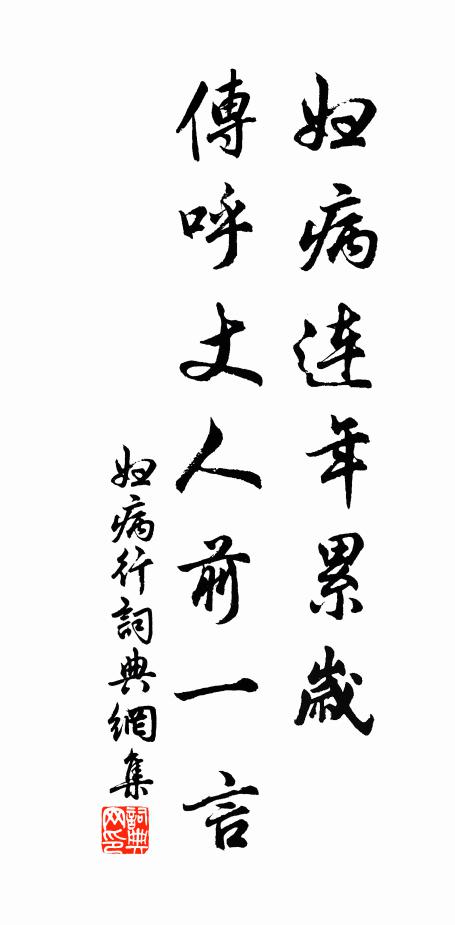 妇病連年累歲
傳呼丈人前一言
妇病行詞典網集
詞典
网印